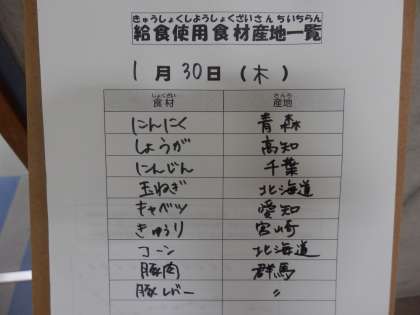 きゅうしょくしようしょくざいさんちいちらん
給食使用食材産地一覧
1月30日(木)
しょくざい さんち
食材 産地
にんにく 青森
しょうが 高知
にんじん 千葉
玉ねぎ 北海道
キャベツ 愛知
きゅうり 宮崎
コーン 北海道
豚肉 群馬
豚レバー 〃